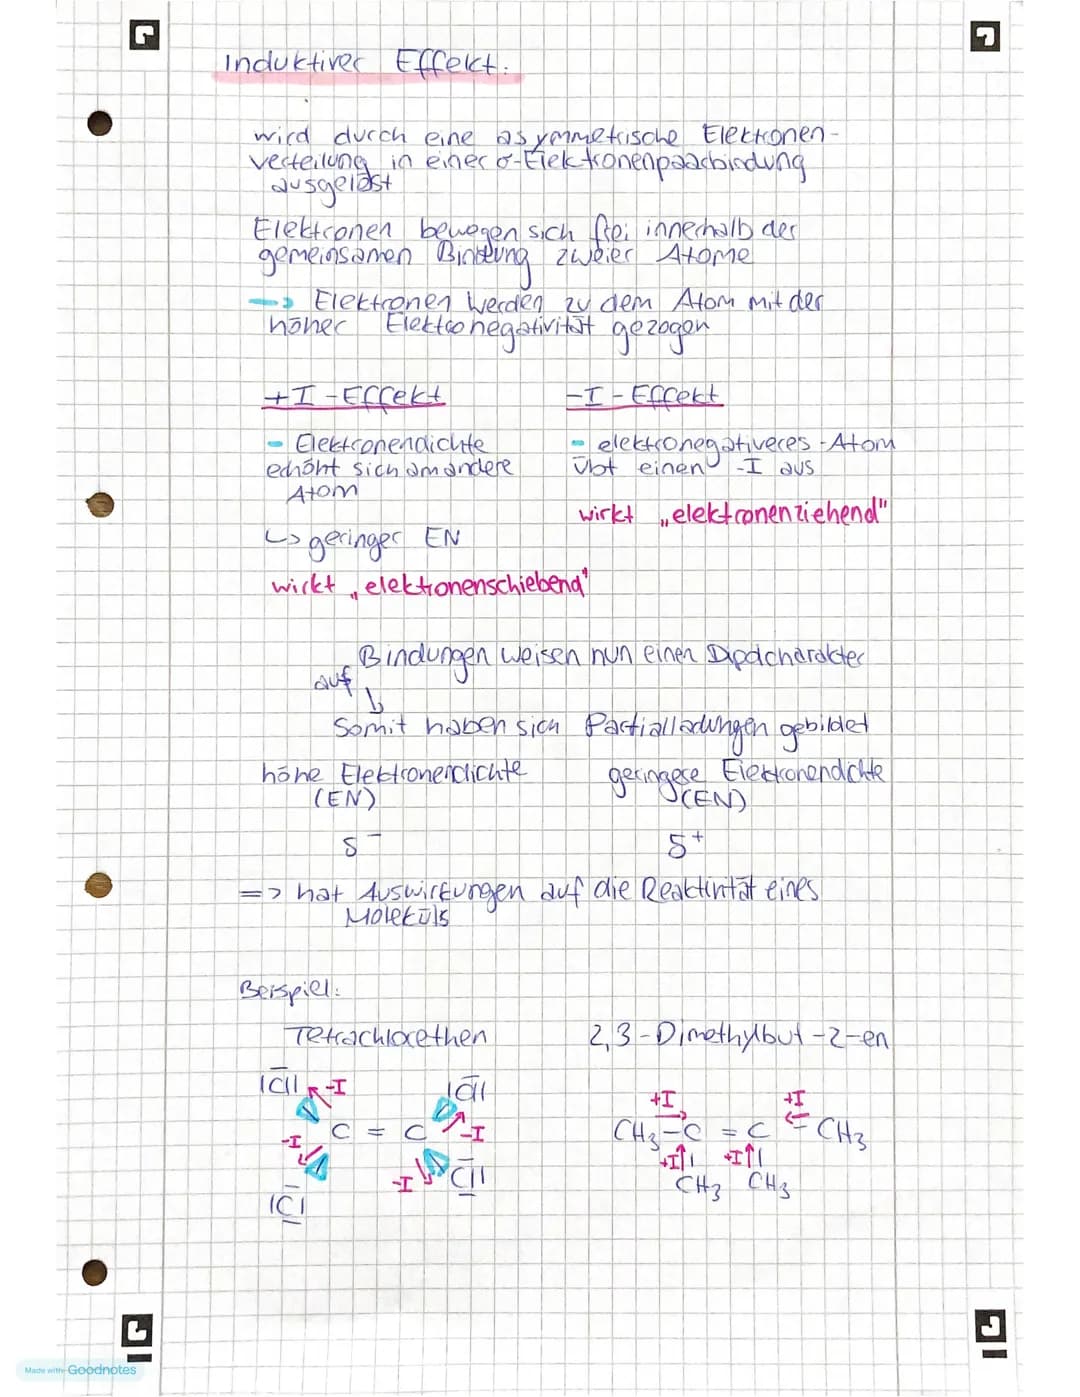 Induktiver Effekt:
wird durch eine asymmetrische Elektronen-
verteilung in einer σ-Elektronenpaarbindung
ausgelöst
Elektronen bewegen sich frei innerhalb der
gemeinsamen Bindung zweier Atome
--> Elektronen werden zu dem Atom mit der
höher Elektronegativität gezogen
+I-Effekt
- Elektronendichte
erhöht sich am andere
Atom
↳ geringer EN
wirkt „elektronenschiebend"
-I-Effekt
- elektronegativeres-Atom
übt einen -I aus
wirkt „elektronenziehend"
Bindungen weisen nun einen Dipolcharakter
auf
↳
Somit haben sich Partialladungen gebildet
höhe Elektronendichte
(EN)
δ⁻
geringere Elektronendichte
(EN)
δ⁺
=> hat Auswirkungen auf die Reaktivität eines
Moleküls
Beispiel:
Tetrachlorethen
|Cl| -I |Cl|
-I C = C -I
|Cl| -I |Cl|
2,3-Dimethylbut-2-en
+I +I
CH₃-C = C CH₃
+I↑| +I↑|
CH₃ CH₃
Made with Goodnotes